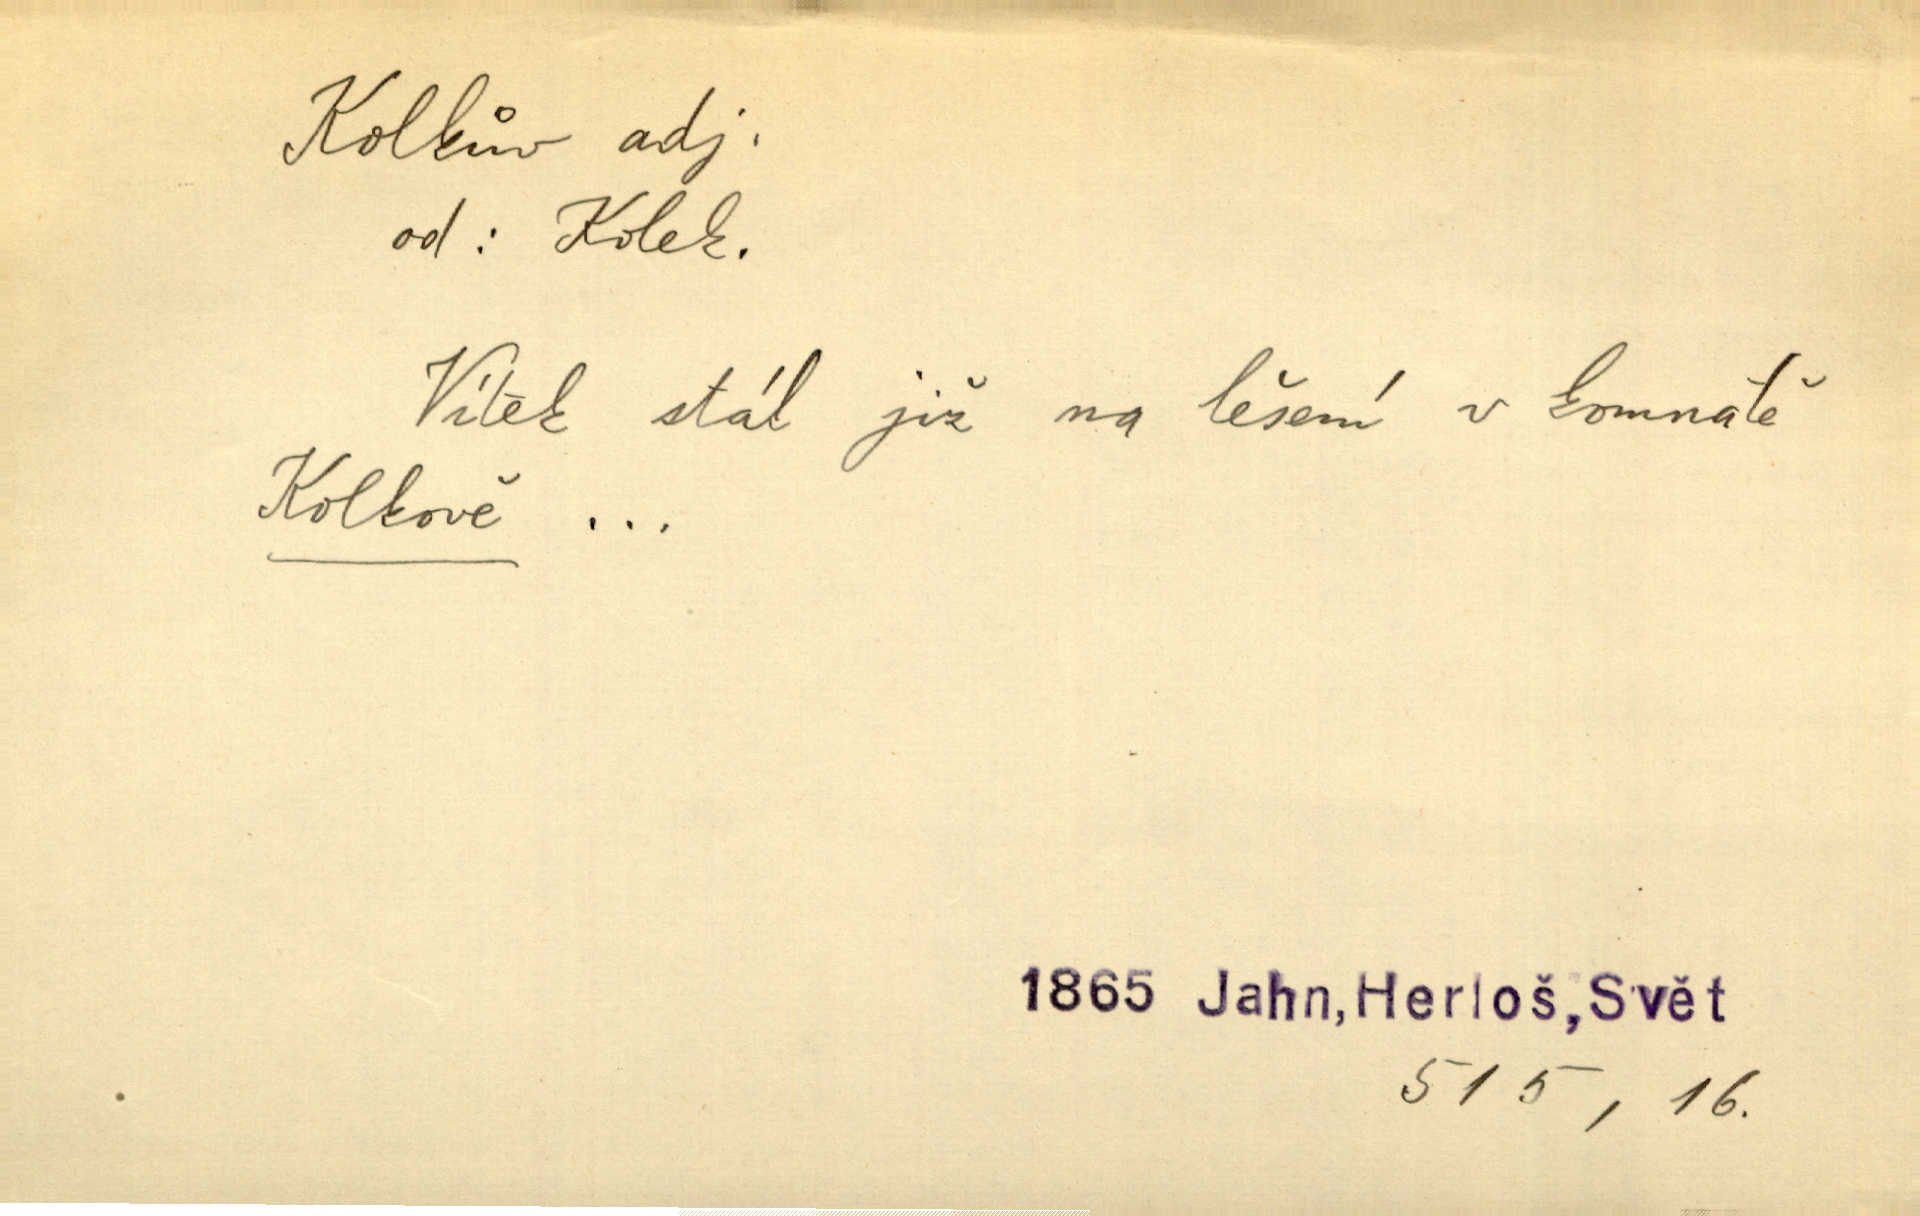 Kolkův adj.
od: Kolek.
Vítek stál již na lešení v komnatě
Kolkově ...
1865 Jahn, Herloš, Svět
515, 16.